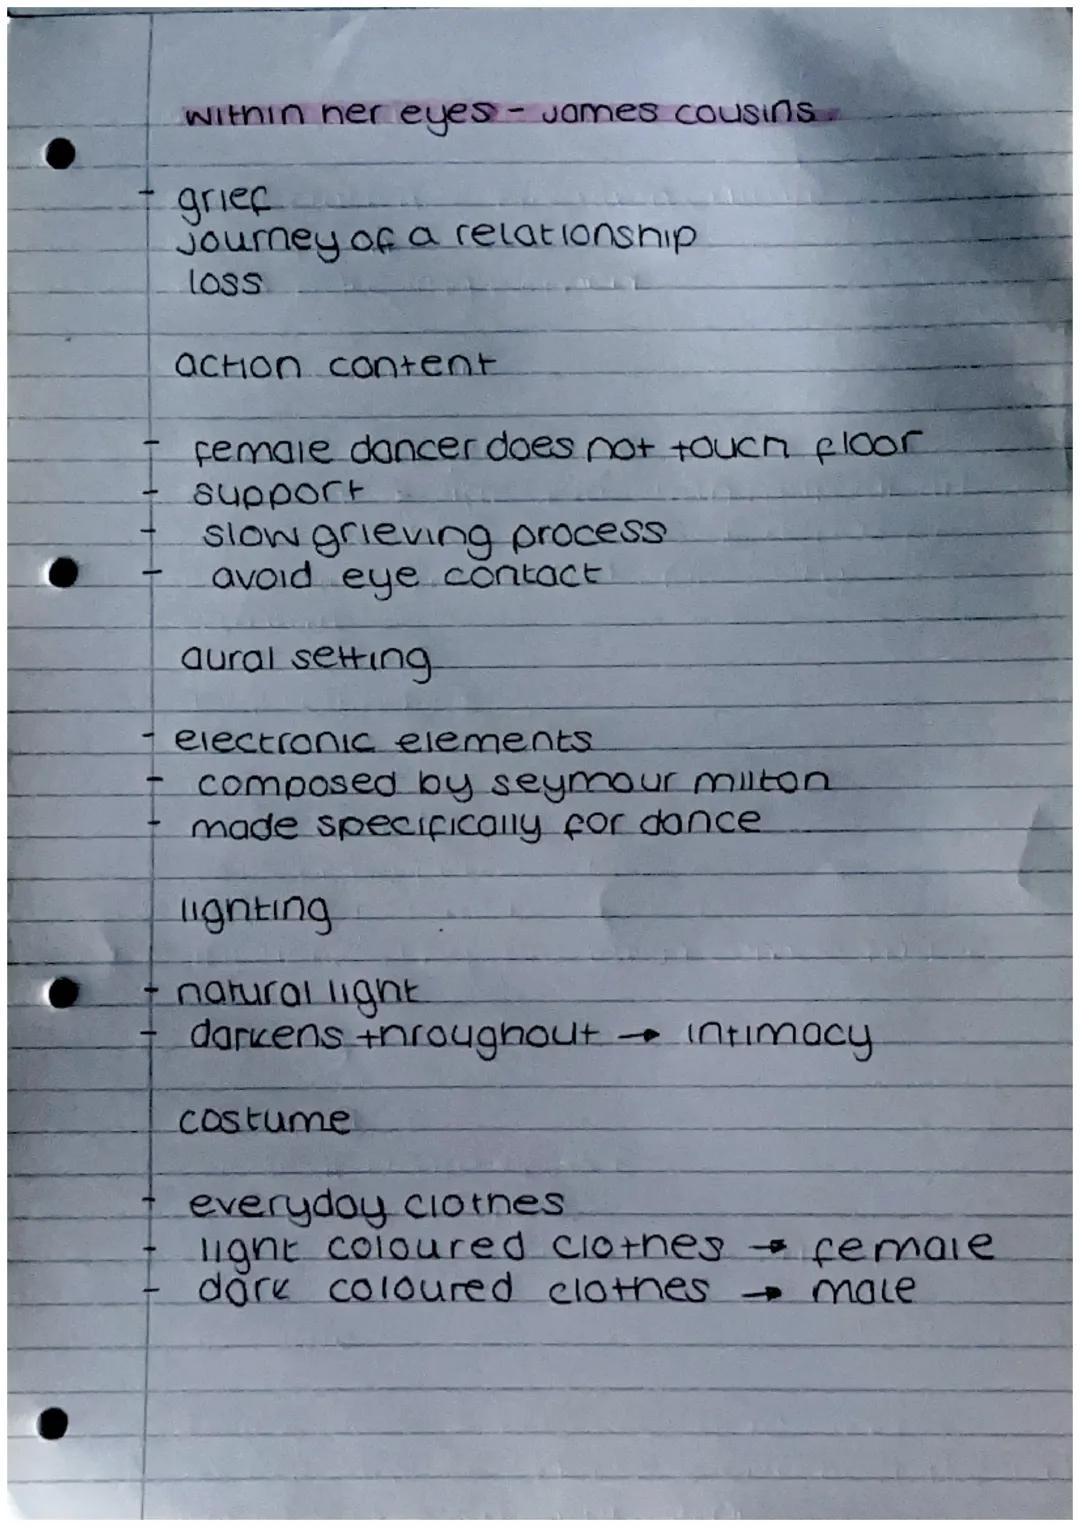 within her eyes - James cousins.
- grief
journey of a relationship
loss
action content
- female dancer does not touch floor
- support
- slow grieving process
- avoid eye contact
aural setting
- electronic elements
- composed by seymour milton
- made specifically for dance
lighting
- natural light
- darkens throughout → intimacy
costume
- everyday clothes
- light coloured clothes → female
- dark coloured clothes → male